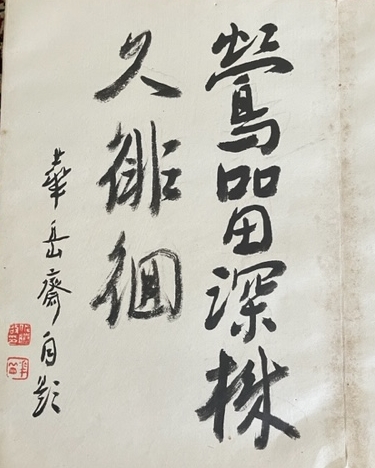 鶯留深株
久徘徊
華岳齋自題